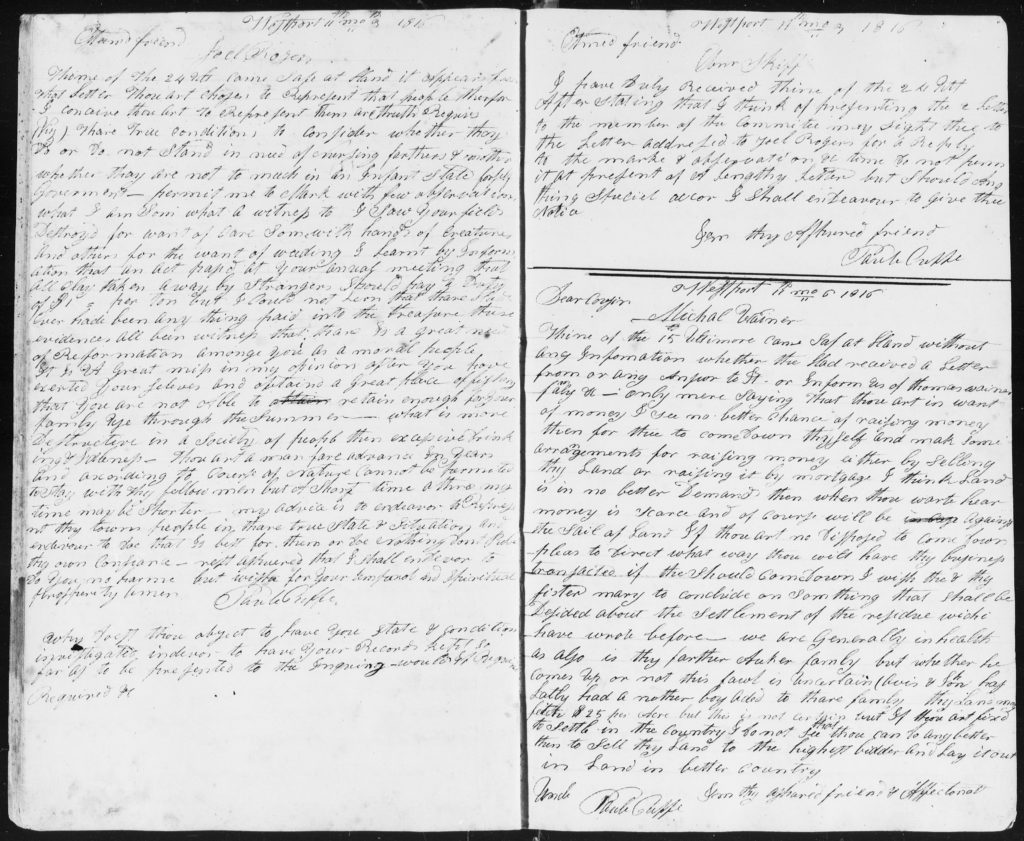 Westport 11th mo 3 1816
Esteemd friend
Joel Rogers
Thine of the 24 Ult Came Safe at Hand it appears from
that Letter Thou art Chosen to Represent that people therfor
I conceive thou art to Represent them are truth Requir
thy) thare True conditions to consider whether thay
Do or Do not Stand in need of nursing farthers & mothers
whether thay are not to much in an Infant State for Self
Goverment — permit me to Mark with few observations
what I am Som what a witness to I Saw Your fields
Destroyd for want of Care Som with hands of Creatures
and others for the want of weading I Learnt by Inform
ation that an act pass'd at Your anual meeting that
all Clay taken away by Strangers Should pay a Duty
of $1 per ton but I Could not Lern that thare
Ever had been any thing paid into the treasure these
evidences all been witness that thare Is a great need
of Reformation amonge You as a moral people
It Is A Great miss in my opinion after You have
exerted Your selves and optaind a Great place of fishery
that You are not able to retain enough for your
family Use through the Sumer — what is more
Destructive in a Society of people then excessive Drink
ing & Idleness — Thou art a man fare advance In Years
and according to Cours of Nature Cannot be permited
to Stay with thy fellow men but a Short time a thine my
time may be Shorter — my advice is to endeavor to Represe
nt thy town people in thare true State & Situation and
endeavour to Doe that Is best for them or Doe nothing Dont Hold
thy own Consarne — rest asshured that I Shall endevor to
Do You no harme but wish for Your Temporal and Spiritual
prosperity amen
Paul Cuffe
Why Doest thou object to have You State & condition
investagated indevor to have Your Records kept So
far as to be presented to the Inquiring would if Requir
Required &c
Westport 11th mo 3 1816
Esteemed friend
Ebnr Skiff
I have Duly Received thine of the 24 Ult
After Stating that I think of presenting the Letter
to the member of the Committee may Sight thee to
the Letter addressed to Joel Rogers for a Reply
to the marks & observation &c time Do not perm
it at present of A Lengthy Letter but Should Any
thing Special ocor I Shall endeavour to Give thee
Notice
I am thy Asshured friend
Paul Cuffe
Westport 11th mo 6 1816
Dear Cosyn
Michal Wainer
Thine of the 15th Ultimore Came Saf at Hand without
any Infomation whether thee Had received a Letter
from or any Ansur to It - or Inform us of thomas wainers
famly &c — only mere Saying that thou art in want
of money I See no better Chance of raising money
then for thee to come Down thy self and mak Some
arrangements for raising money either by Selling
thy Land or raising it by mortgage I think Land
is in no better Demand then when thou wark hear
money is Scarce and of Course will be against
the Sail of Land If thou art no Disposed to Come Down
pleas to Direct what way thou will have thy business
transacted if thee Should Come Down I wish thee & thy
sister mary to Conclude on Somthing that Shall be
Desided about the Settlement of the residue wich i
have wrote before — we are Generally in health
as also is thy farther Auker famly but whether he
Comes Up or not this fawl is uncertain has
Latly had a nother boy aded to thare family thy Land may
fetch $25 per Acre but this is not certain but If thou art
to Settle in the Country I Do not See that thou Can Do any better
then to Sell thy Land to the highest bidder and Lay it out
in Land in better Country
I am thy asshured friend & Affectionat
Uncle Paul Cuffe